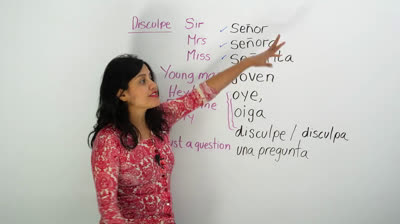 Disculpe Sir Señor
Mrs Señora
Miss
Young joven
oye,
oiga
disculpe / disculpa
a question una pregunta